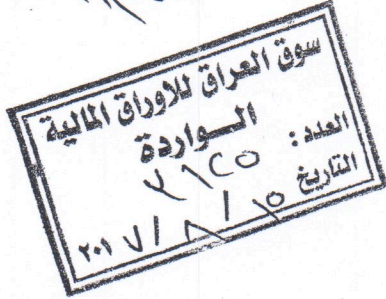 سوق العراق للاوراق المالية
الـــواردة
العدد :
التاريخ ١٥ / ٨ / ٢٠١٧